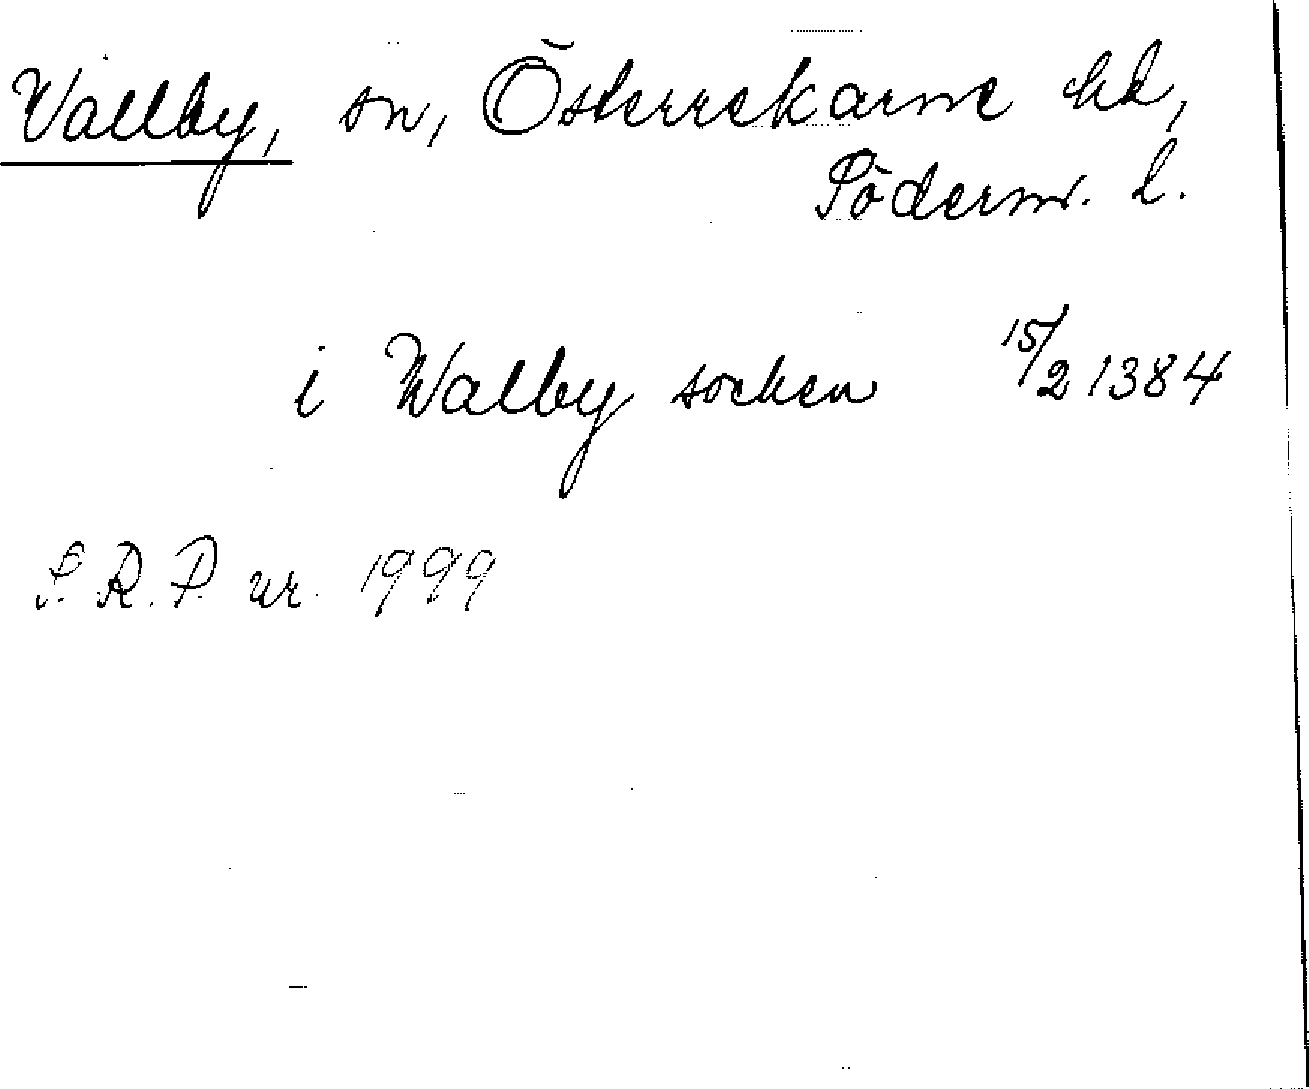 Vallby, sn, Österrekarne hd,
Söderm. l.
i Walby socken 15/2 1384
S.R.P. nr. 1999